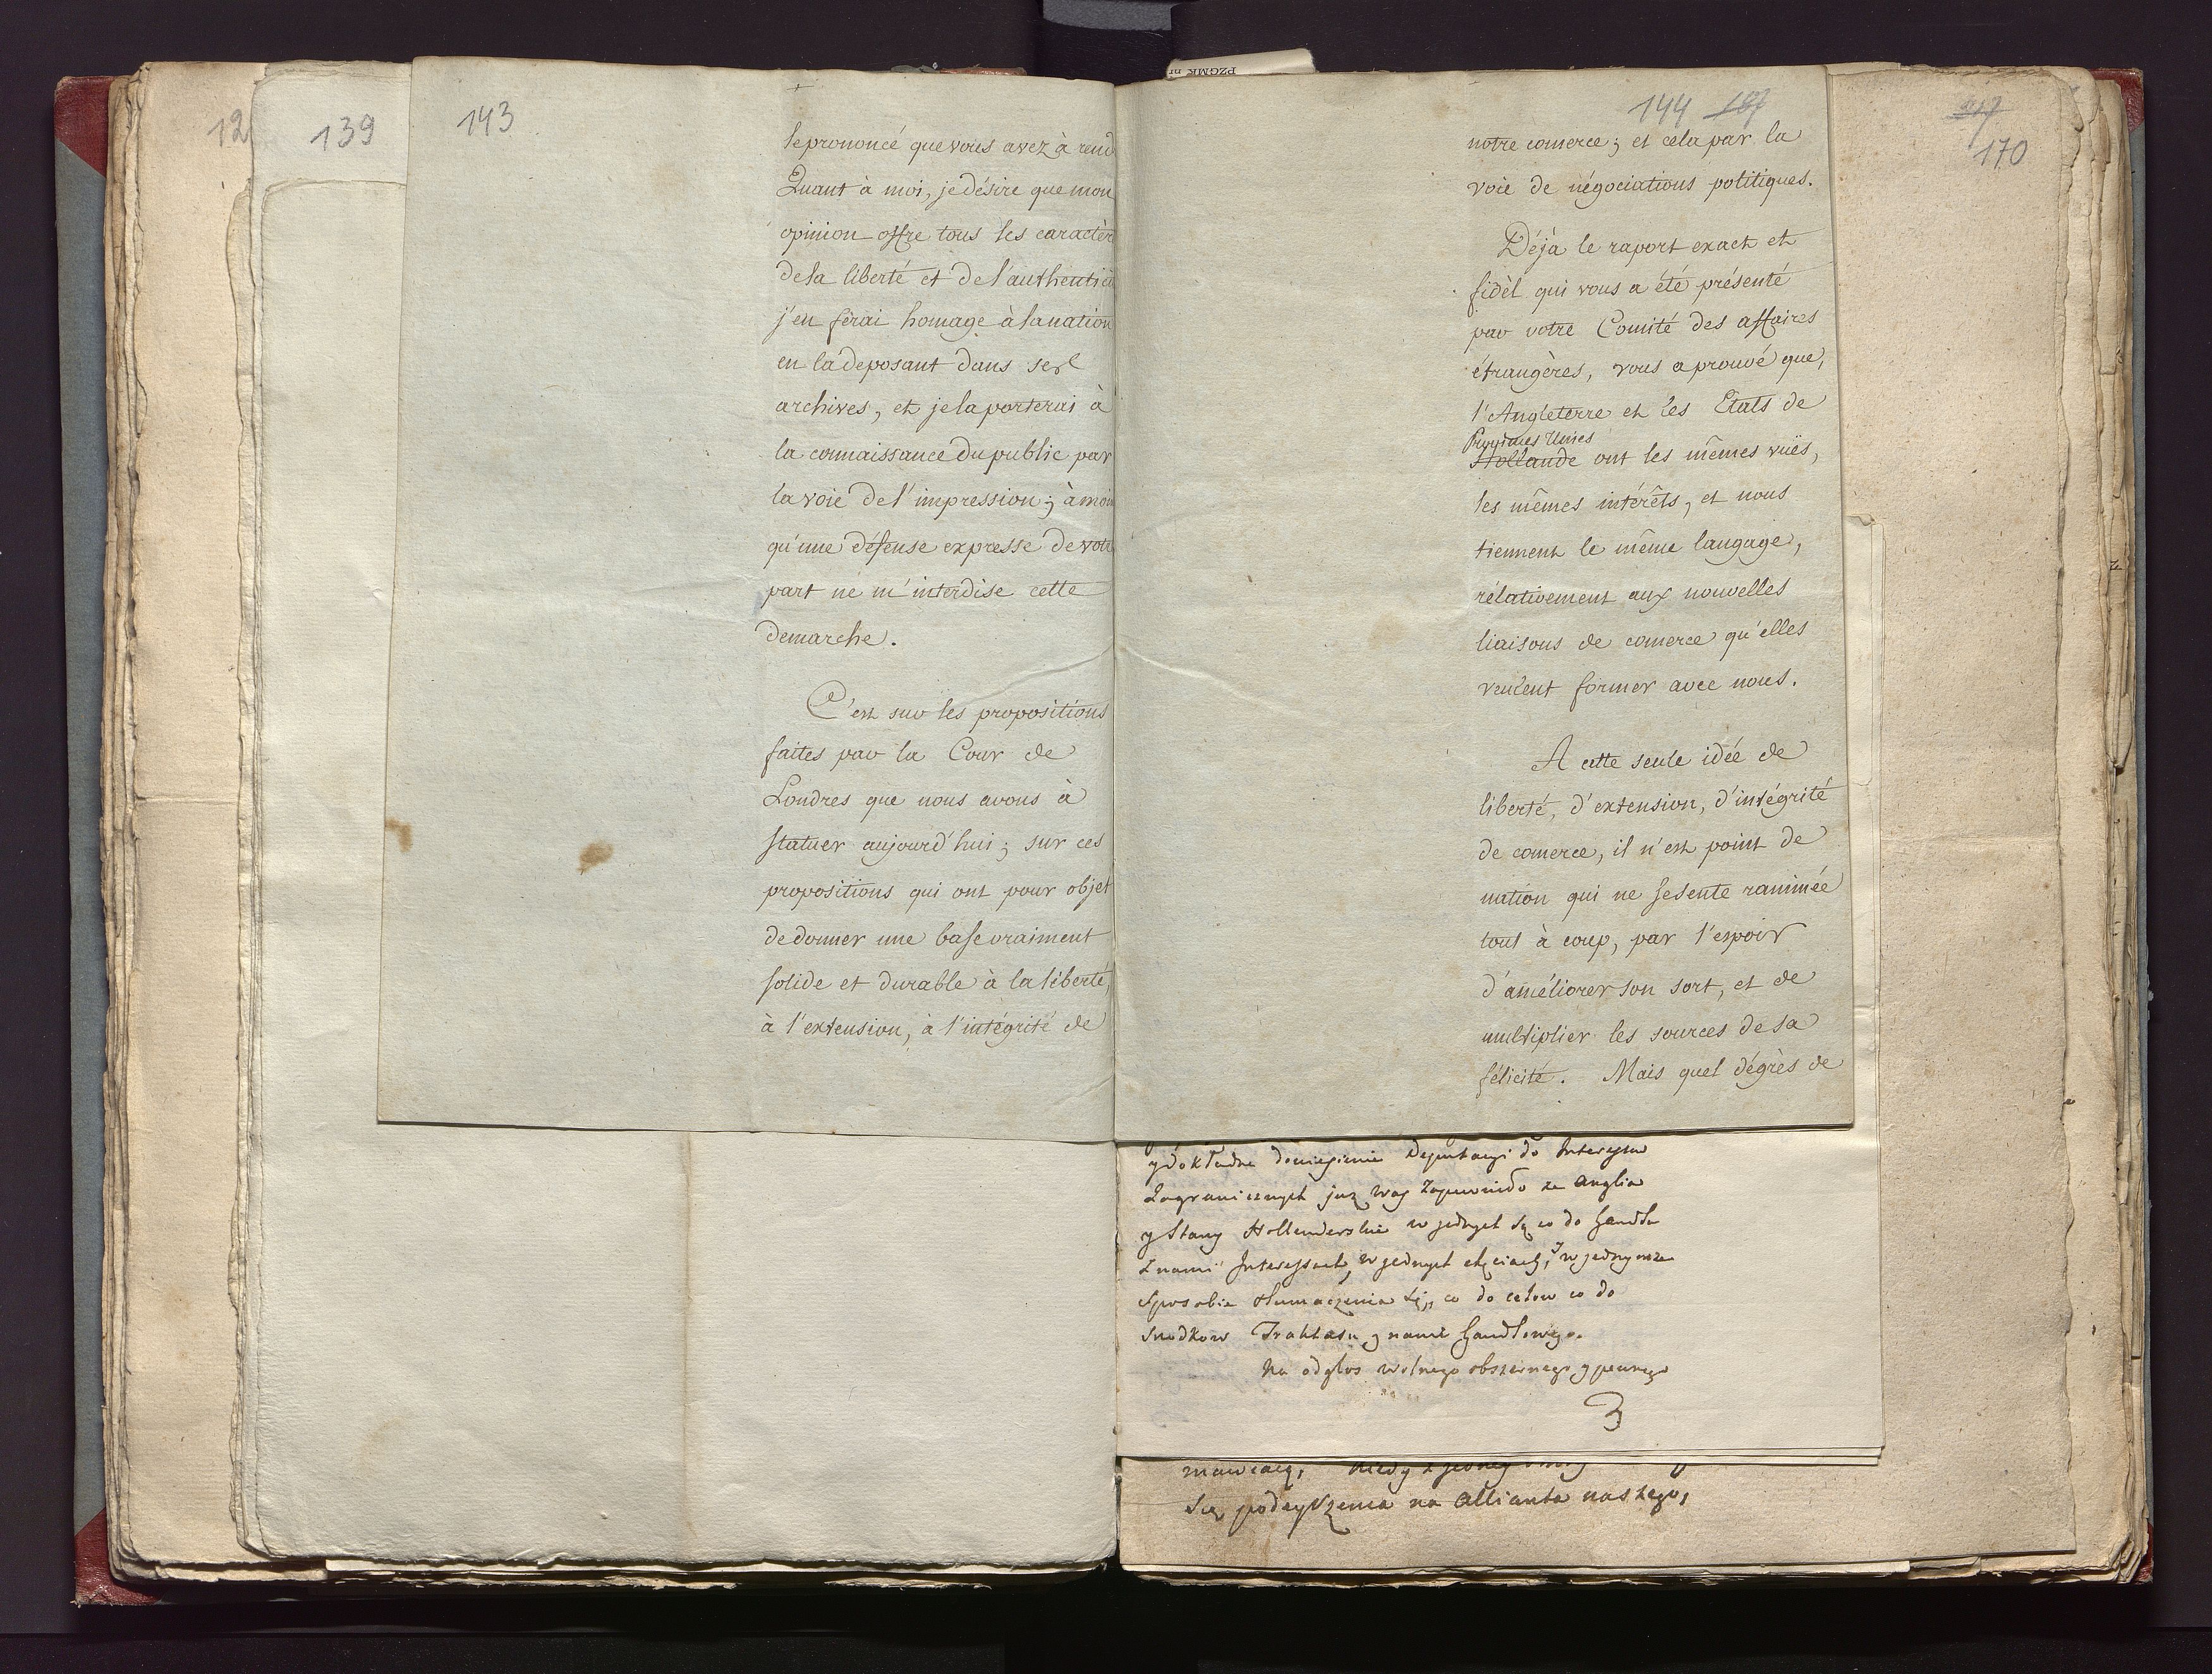 12
139
143
le prononcé que vous avez à rend
Quant à moi, je désire que mon
opinion offre tous les caractèr
de la liberté et de l'authentici
j'en ferai homage à la nation
en la deposant dans ses
archives, et je la porterai à
la connaissance du public par
la voie de l'impression; à moin
qu'une défense expresse de votr
part ne m'interdise cette
demarche.
C'est sur les propositions
faites par la Cour de
Londres que nous avons à
statuer aujourd'hui; sur ces
propositions qui ont pour objet
de donner une base vraiment
solide et durable à la liberté,
à l'extension, à l'intégrité de
PZGMK nr
144 167
notre comerce; et cela par la
voie de négociations politiques.
Déjà le raport exact et
fidèl qui vous a été présenté
par votre Comité des affaires
étrangères, vous a prouvé que,
l'Angleterre et les Etats de
Provinces Unies
Hollande ont les mêmes vuës,
les mêmes intérêts, et nous
tiennent le même langage,
rélativement aux nouvelles
liaisons de comerce qu'elles
veulent former avec nous.
A cette seule idée de
liberté, d'extension, d'intégrité
de comerce, il n'est point de
nation qui ne se sente ranimée
tout à coup, par l'espoir
d'améliorer son sort, et de
multiplier les sources de sa
félicité. Mais quel dégrès de
170
y dokładne doniesienie Deputacyi do Interesow
Zagranicznych juz Was zapewniło ze Anglia
y Stany Hollenderskie w jednych są co do handlu
z nami Interessach, w jednych chęciach, y w jednymze
sposobie tłumaczenia się, co do celow co do
srodkow Traktatu z nami handlowego.
Na odgłos wolnego obszernego y pewnego
3
mawiaią, kiedy z
Się podwyższenia na Allianta naszego,